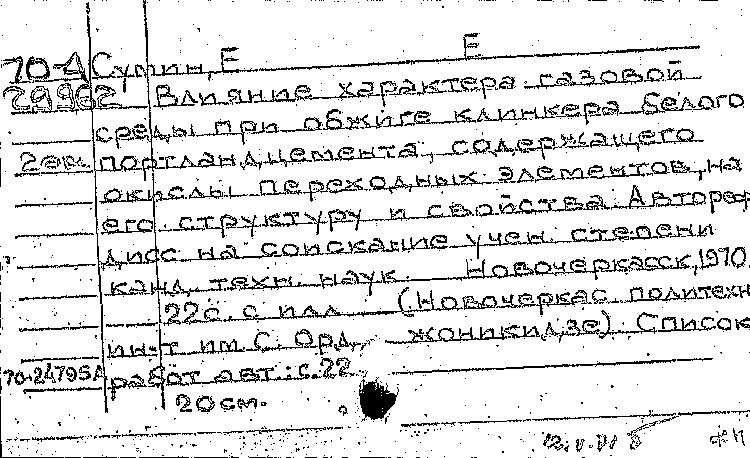 70-А Сумин, Е Е
29962 Влияние характера газовой
среды при обжиге клинкера белого
2 экз портландцемента, содержащего
окислы переходных элементов, на
его структуру и свойства. Автореф
дисс на соискание учен. степени
канд. техн. наук. Новочеркасск, 1970.
22 с. с илл (Новочеркас политехн
ин-т им С. Орджоникидзе) Список
70-24795А работ авт.: с. 22
20 см.